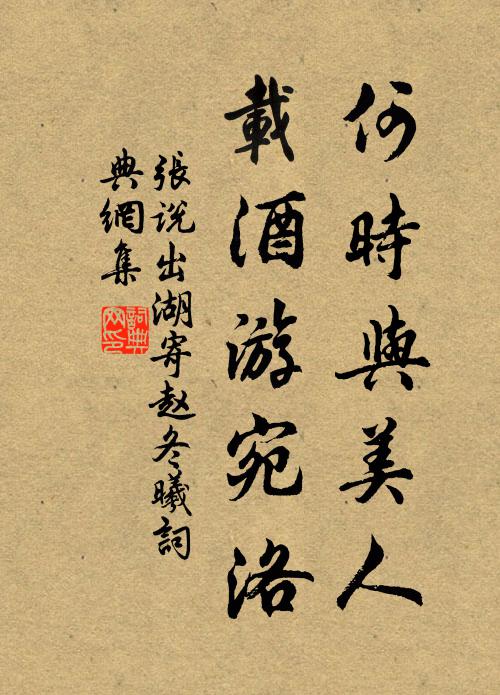 何時與美人
載酒游宛洛
張說出湖寄赵冬曦詞
典網集
詞典
网印